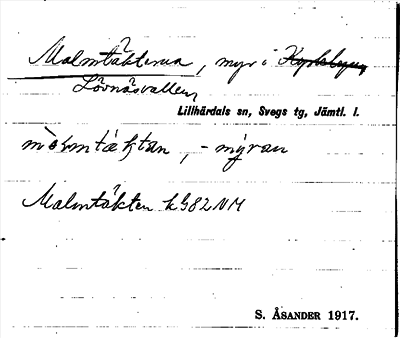 Malmtäkterna, myr i Kyrkbyn,
Lövnäsvallen
Lillhärdals sn, Svegs tg, Jämtl. l.
màlmtæktan, -mỳran
Malmtäkten k 982 NM
S. ÅSANDER 1917.